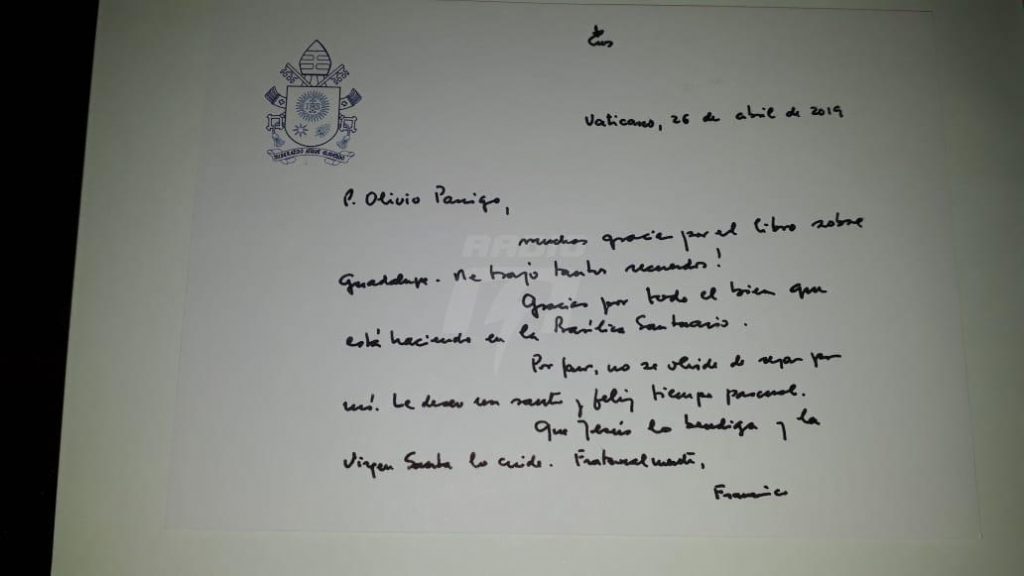 Vaticano, 26 de abril de 2019
MISERANDO ATQUE ELIGENDO
P. Olivio Panigo,
muchas gracias por el libro sobre
Guadalupe. Me trajo tantos recuerdos!
Gracias por todo el bien que
está haciendo en la Basílica Santuario.
Por favor, no se olvide de rezar por
mí. Le deseo un santo y feliz tiempo pascual.
Que Jesús lo bendiga y la
Virgen Santa lo cuide. Fraternalmente,
Francisco
RADIO